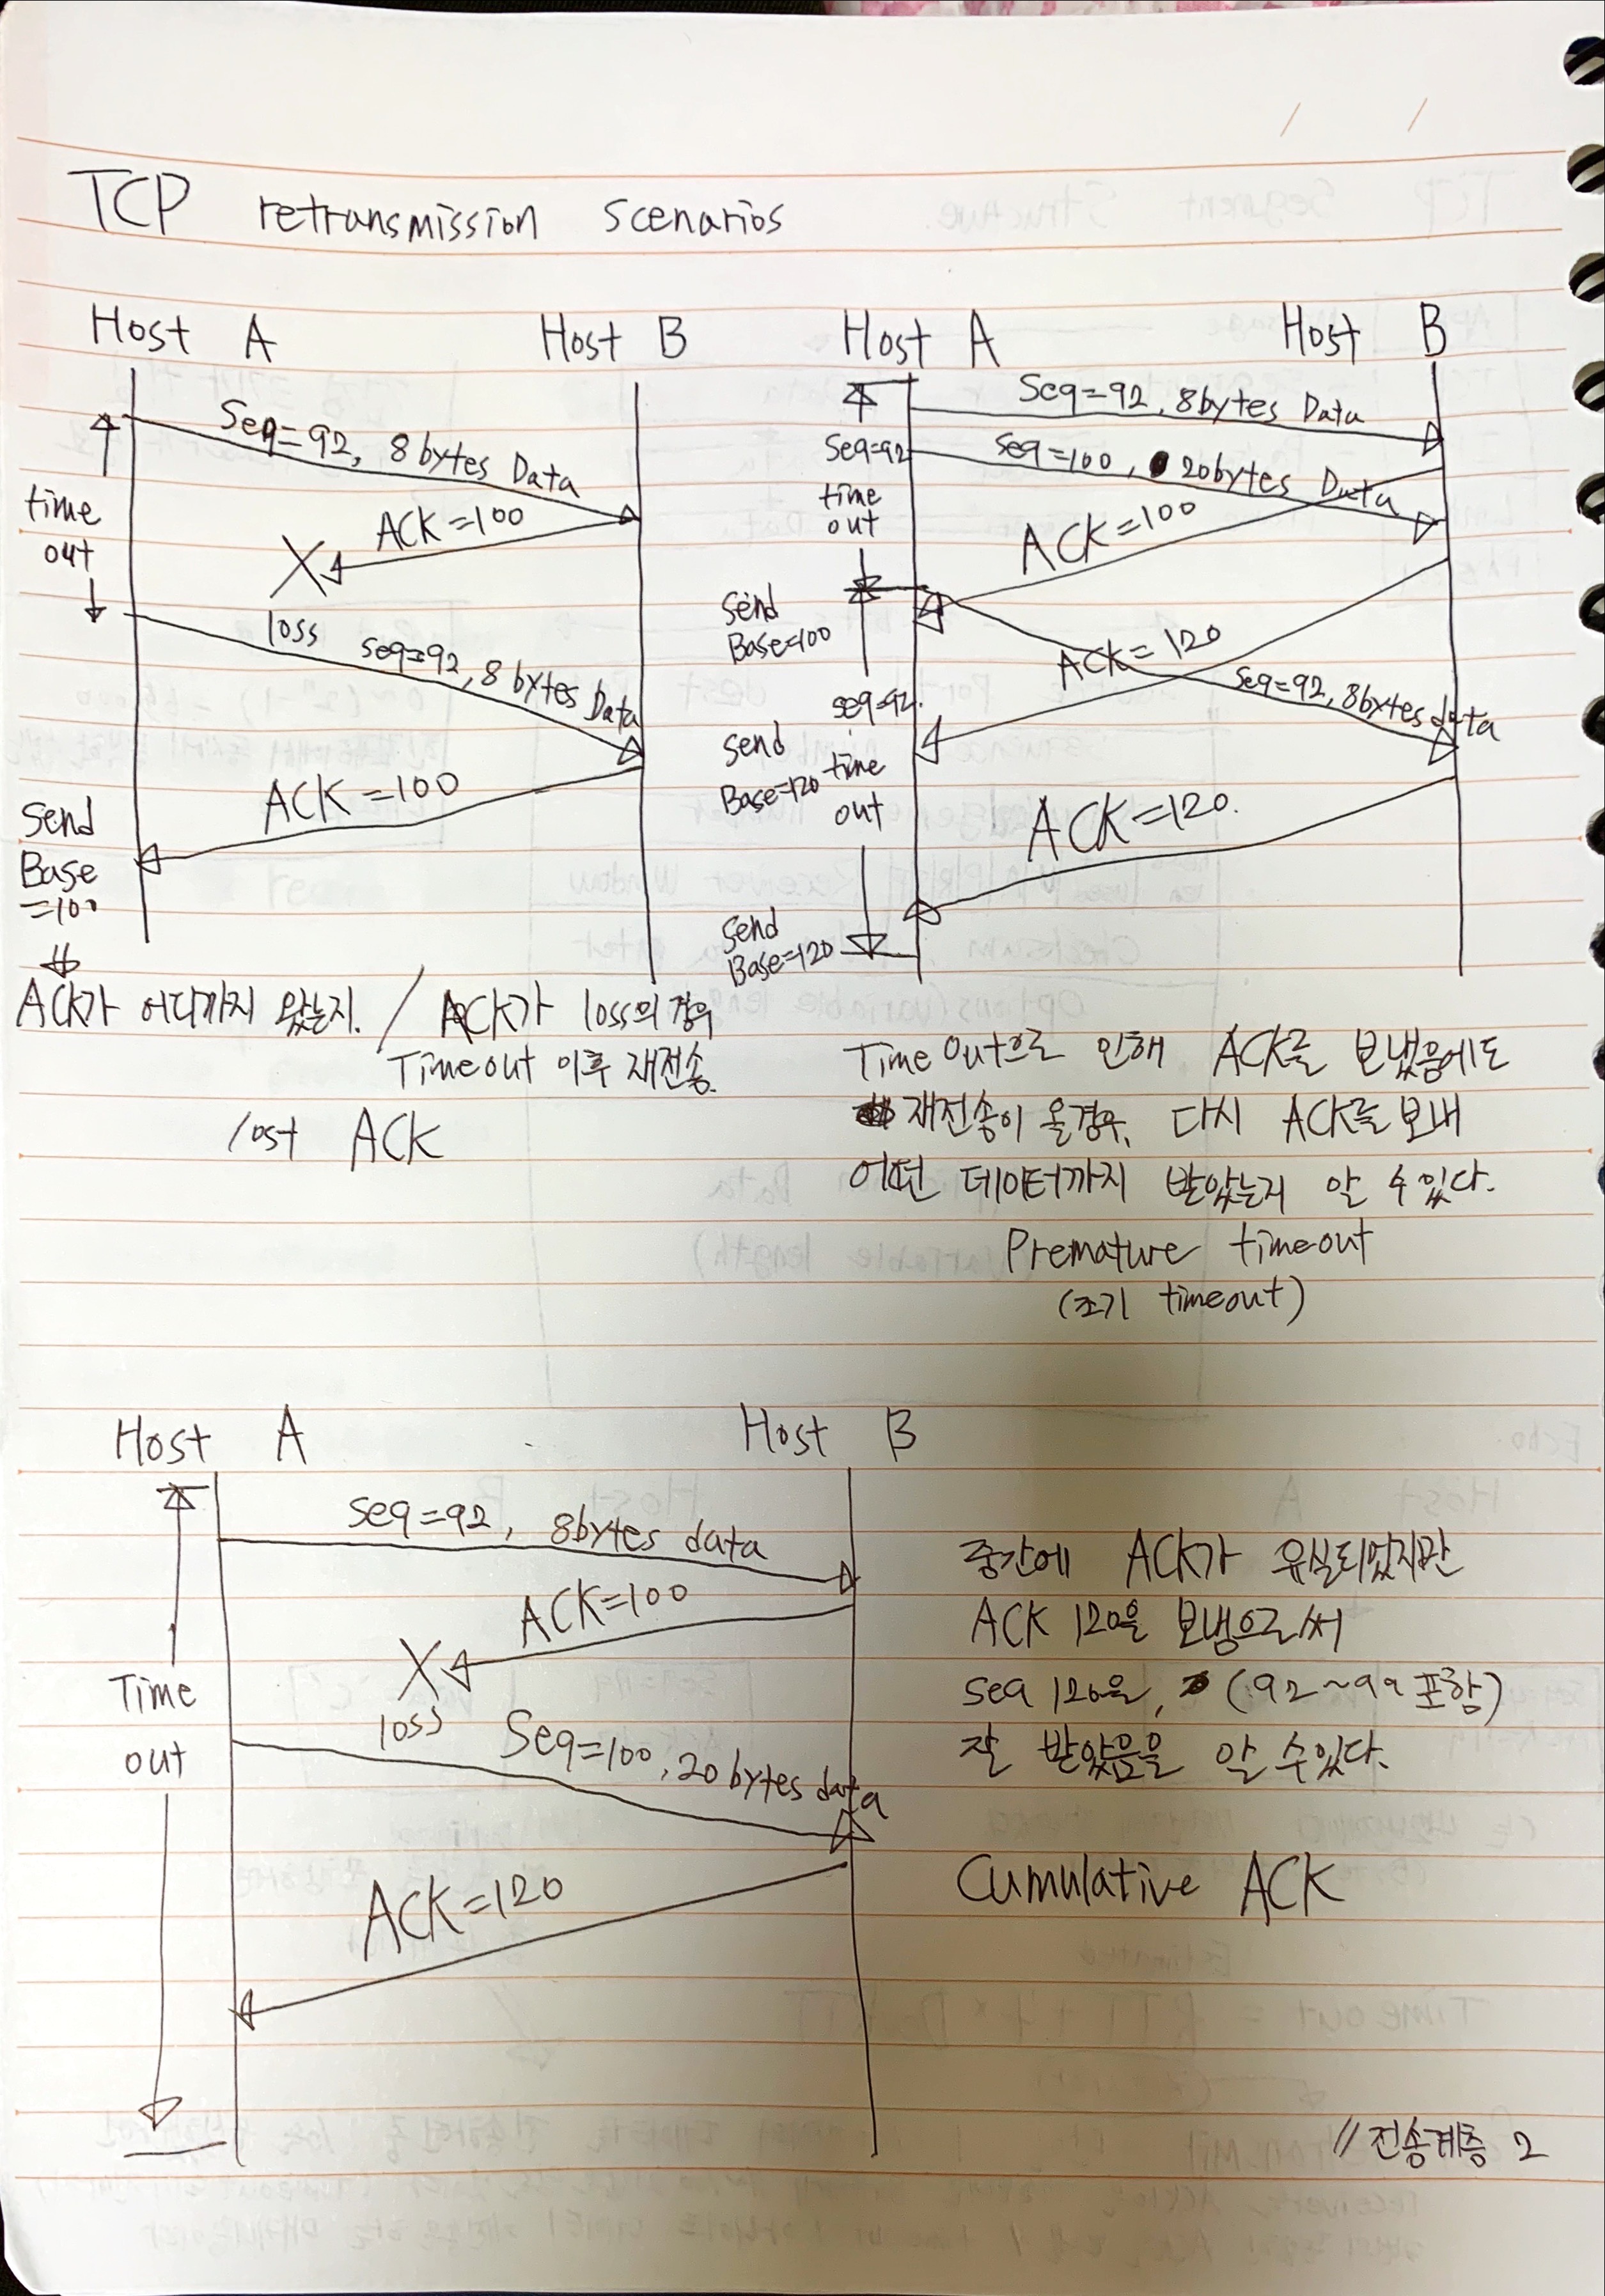 TCP retransmission scenarios
Host A Host B
Seq=92, 8bytes Data
time
out
ACK=100
X
loss
Seq=92, 8bytes Data
ACK=100
Send
Base
=100
ACK가 어디까지 왔는지. / ACK가 loss의 경우
Timeout 이후 재전송.
lost ACK
Host A Host B
Seq=92, 8bytes Data
Seq=92
time
out
Seq=100, 20bytes Data
ACK=100
Send
Base=100
ACK=120
Seq=92, 8bytes data
seq=92
time
out
Send
Base=120
ACK=120.
Send
Base=120
Time Out으로 인해 ACK를 보냈음에도
재전송이 올경우, 다시 ACK를 보내
어떤 데이터까지 받았는지 알 수 있다.
Premature timeout
(조기 timeout)
Host A Host B
Seq=92, 8bytes data
ACK=100
X
loss
Time
out
Seq=100, 20bytes data
ACK=120
중간에 ACK가 유실되었지만
ACK 120을 보냄으로써
seq 120을, (92~99 포함)
잘 받았음을 알 수 있다.
Cumulative ACK
// 전송계층 2